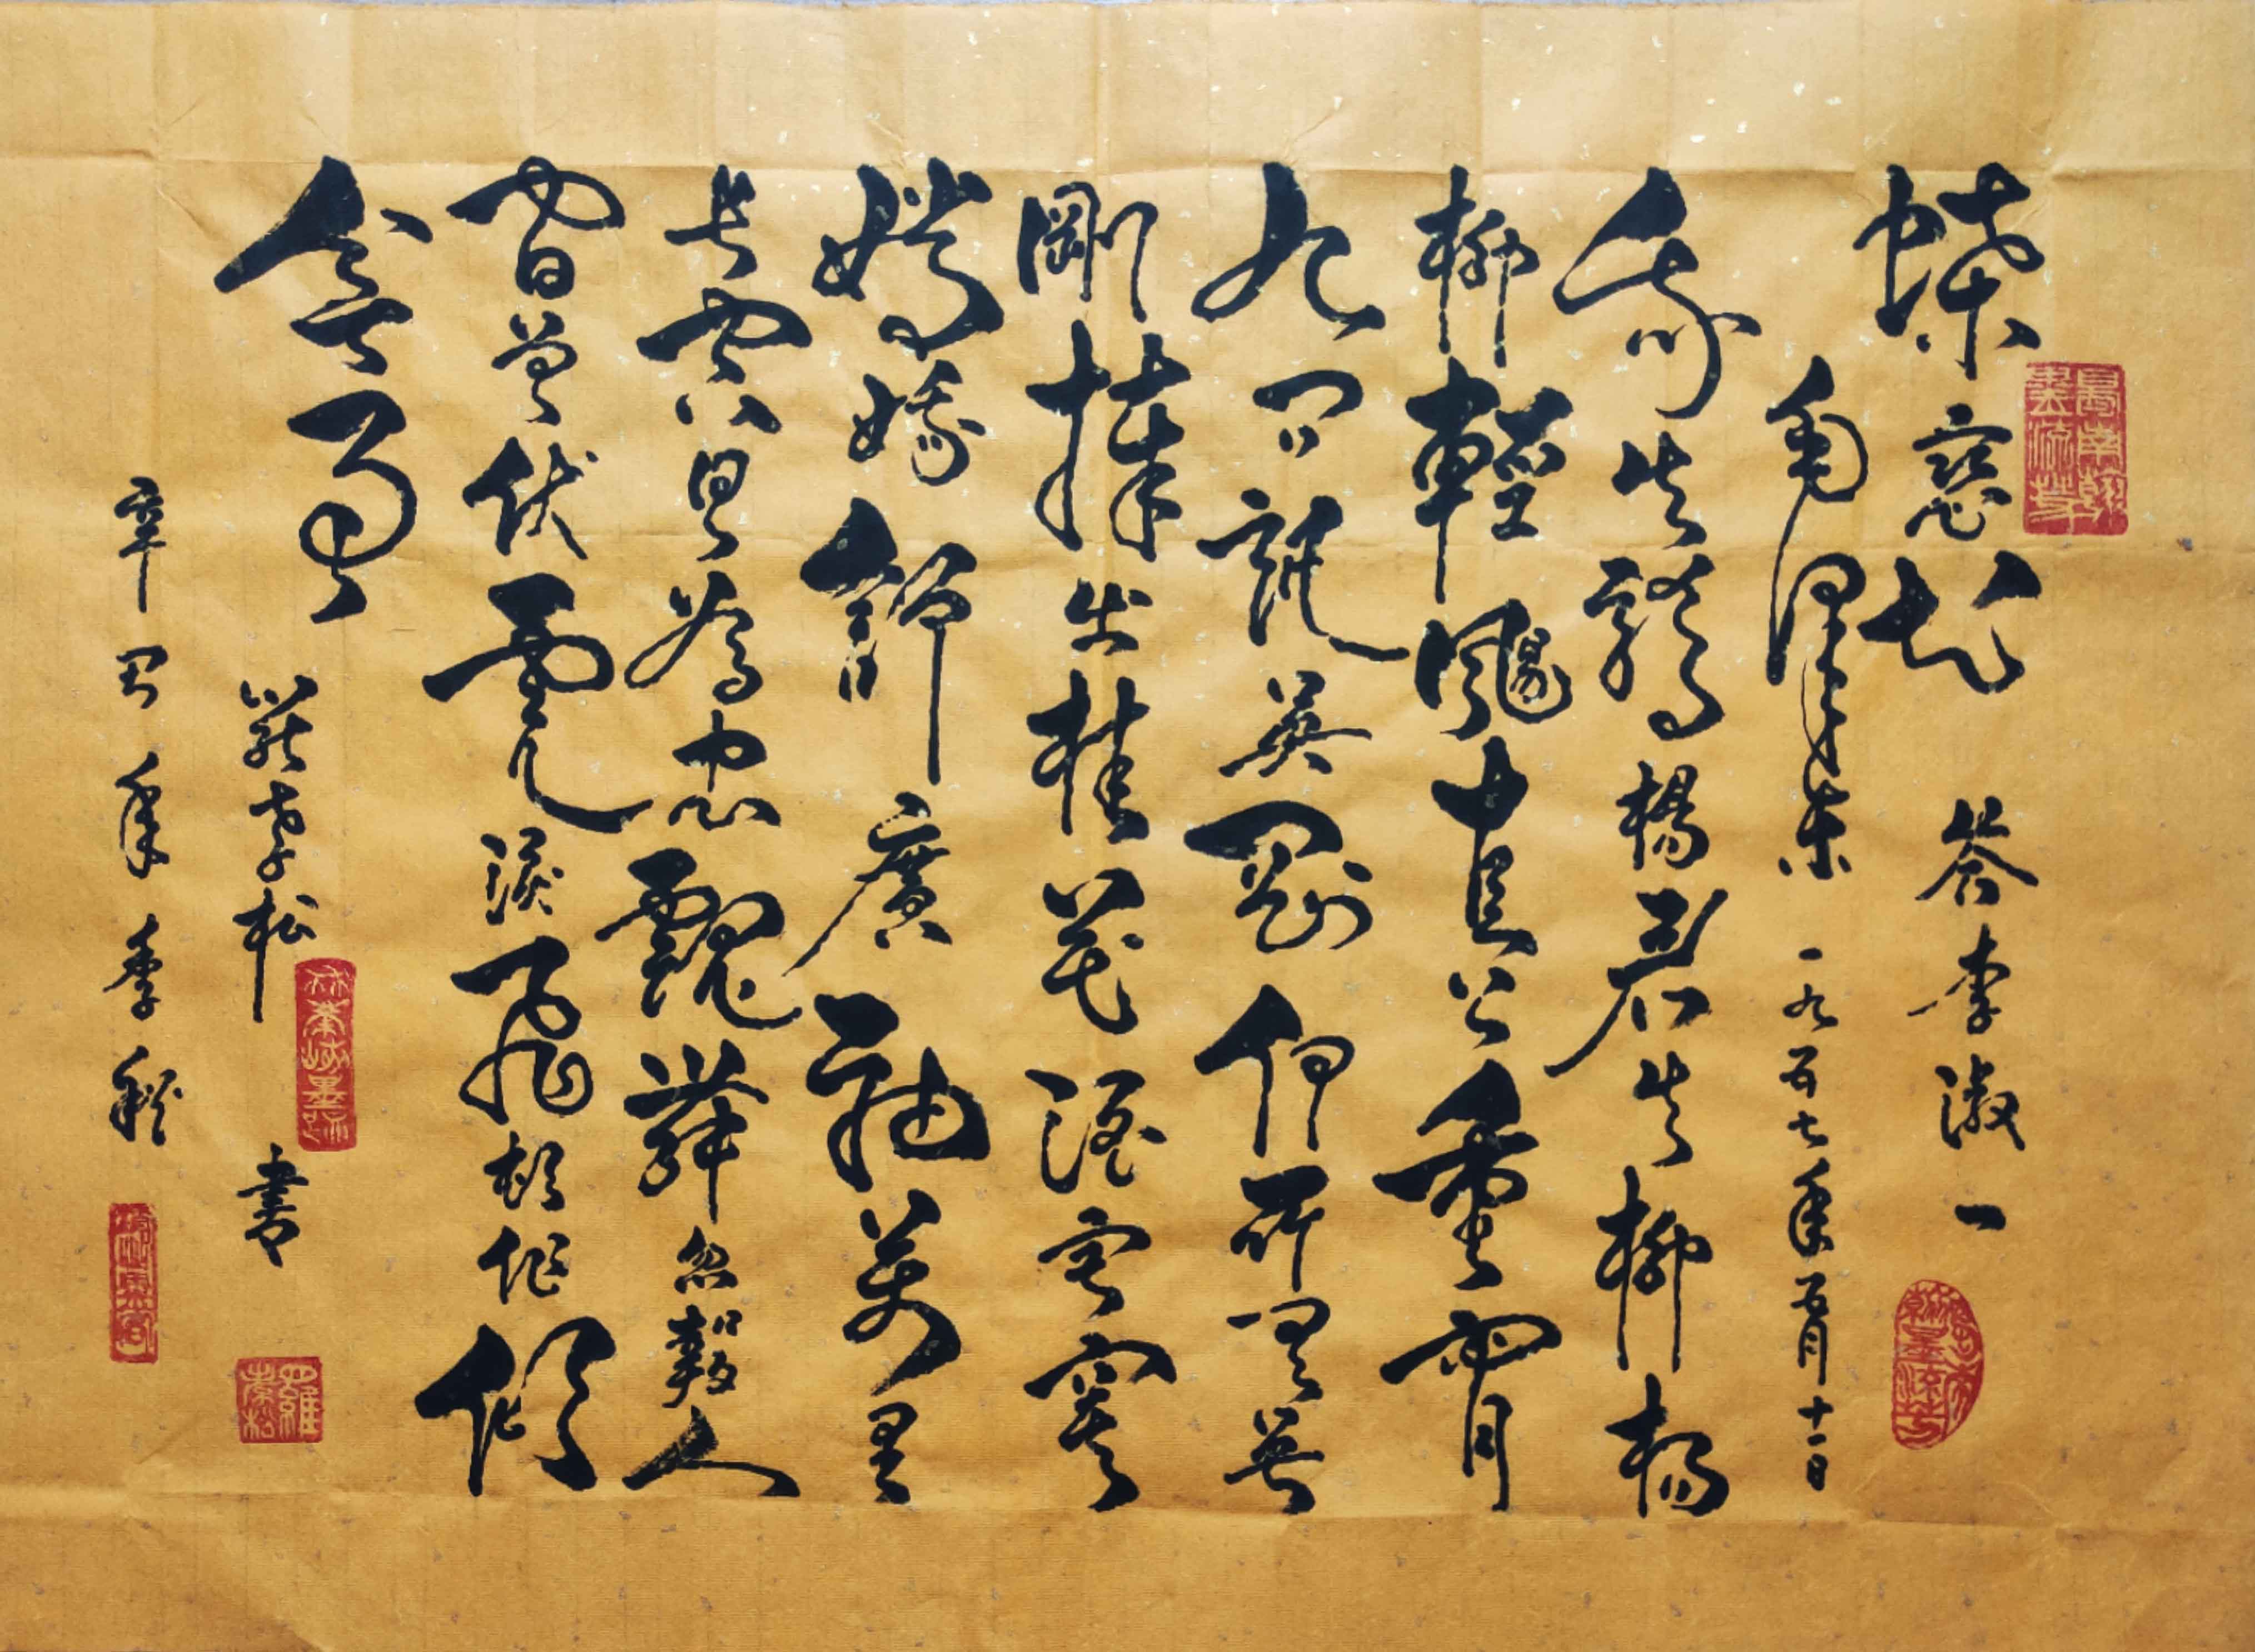 蝶戀花 答李淑一
毛澤東 一九五七年五月十一日
我失驕楊君失柳楊
柳輕颺直上重霄
九問訊吳剛何所有吳
剛捧出桂花酒寂寞
嫦娥舒廣袖萬里
長空且為忠魂舞忽報人
間曾伏虎淚飛頓作傾
盆雨
羅孝松 書
辛丑年季秋